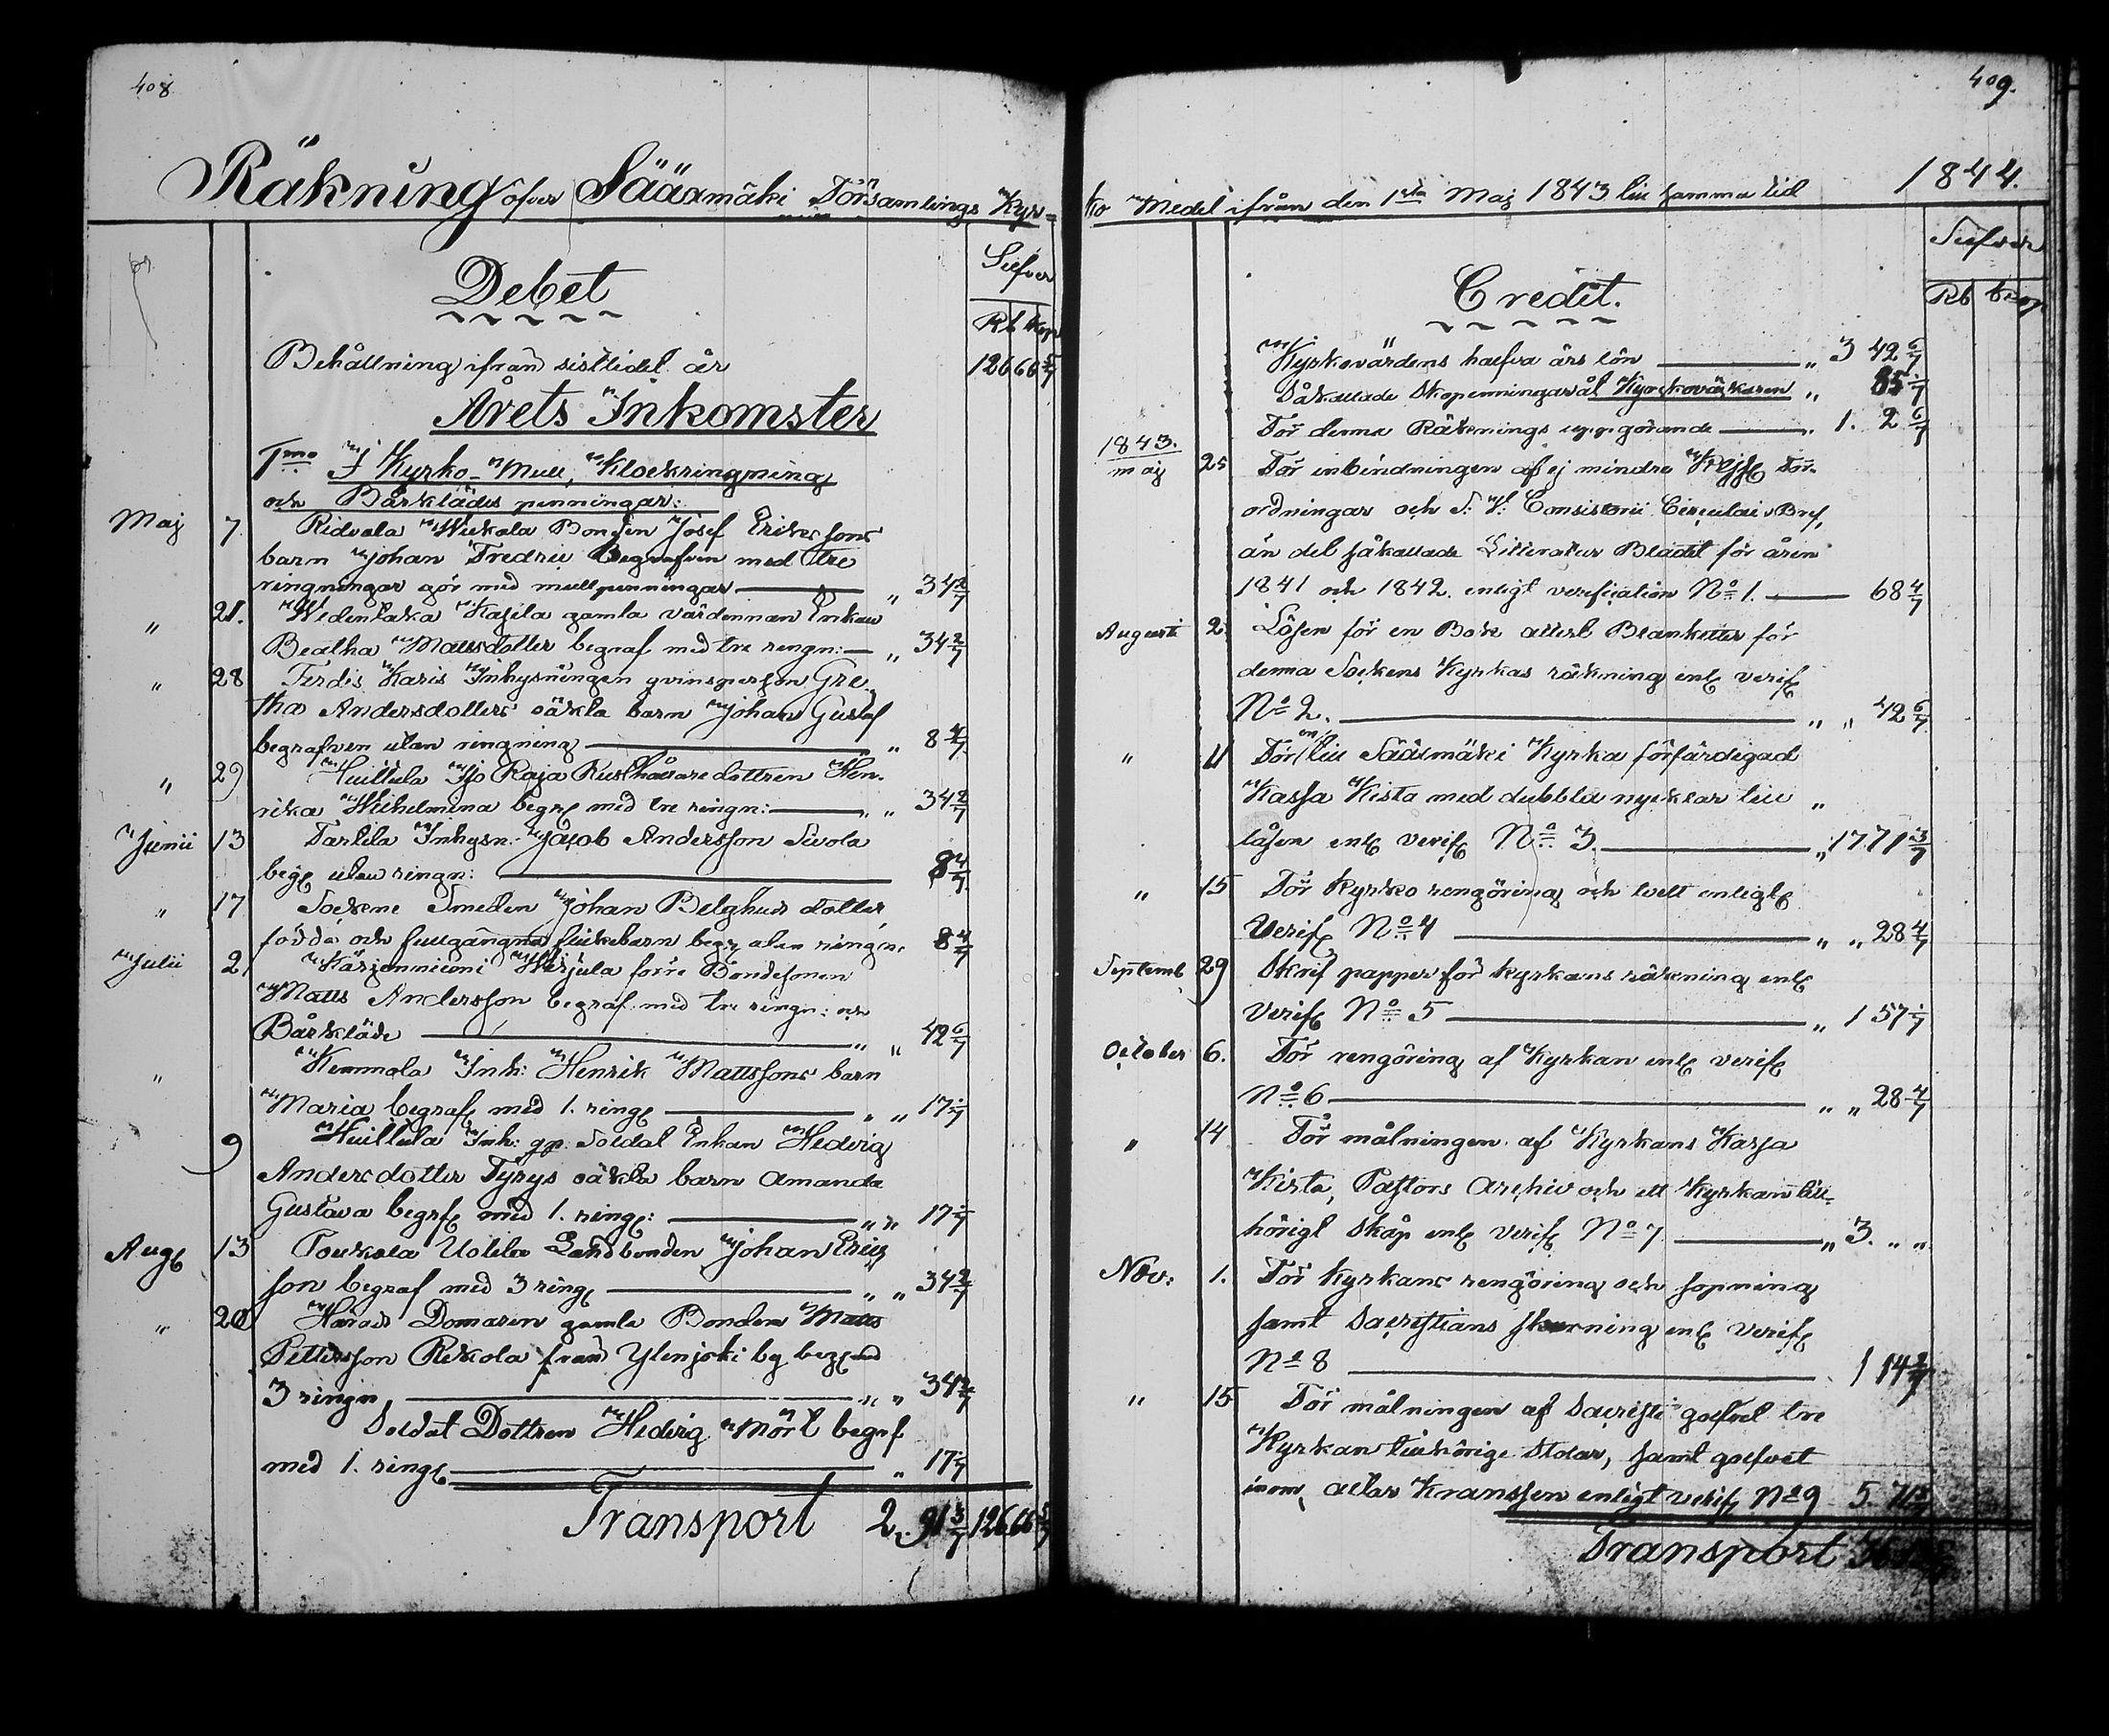 408
Räkning öfver Sääxmäki Församlings Kyr=
Silfver
Debet
Rb kop
Behållning ifrån sistlidet år 126 66 5/7
Årets Inkomster
1mo I Kyrko-Mull, Klockringning
och Bårklädes penningar:
Maj 7. Ridvala Wickala Bonden Josef Ericssons
barn Johan Fredric Begrafven med tre
ringningar gör med mullpenningar — „ 34 2/7
„ 21. gamla värdinnan Enkan
Beatha Mattsdotter begraf med tre ringn: — „ 34 2/7
„ 28 Karis Inhysningen qvinsperson Gre
tha Andersdotters oäkta barn Johan Gustaf
begrafven utan ringning — „ 8 4/7
„ 29 Huittula Ijo Raja Rusthållare dottren Hen-
rika Wilhelmina begrf med tre ringn: — „ „ 34 2/7
Junii 13 Tarttila Inhysn: Jacob Andersson Sivola
begf utan ringn: — 8 4/7
„ 17 Sockne Smeden Johan Belghus dotter,
födda och fullgångna flickebarn begr utan ringn. 8 4/7
Julii 2 Kärjenniemi förre Bondesonen
Matts Andersson begraf. med tre ringn: och
Bårkläde — „ „ 42 6/7
„ Kemmola Inh: Henrik Mattssons barn
Maria begraf med 1. ring — „ „ 17 1/7
9 Huittula Inh: gp. Soldat Enkan Hedvig
Andersdotter Tyrys oäkta barn Amanda
Gustava begrf med 1. ring: — „ „ 17 1/7
Aug 13 Uotila Landbonden Johan Erics
son begraf med 3 ring — „ „ 34 2/7
„ 20 Härads Domaren gamle Bonden Matts
Pettersson Rekola från Ylenjoki by
3 ringn — „ „ 34 2/7
Soldat Dottren Hedvig Mört begrf
med 1. ring — „ 17 1/7
Transport 2. 91 3/7 126 66 5/7
409.
ko Medel ifrån den 1sta Maj 1843 till samma tid 1844.
Silfver
Credit.
Rb kop
Kyrkovärdens halfva års lön — „ 3 42 6/7
Såkallade Skopenningar åt Kyrkoväktaren „ 85 5/7
För denna Räknings uppgörande — „ 1. 2 6/7
1843.
Maj 25 För inbindningen af ej mindre För-
ordningar och S: V: Consistorii Circulair Bref,
än det såkallade Litteratur Bladet för åren
1841 och 1842. enligt verification No 1. — 68 4/7
Augusti 2. Lösen för en Bok allert Blanketter för
denna Sockens Kyrkas räkning enl verif
No 2. — „ „ 42 6/7
„ 11 För en till Sääxmäki Kyrka förfärdigad
Kassa Kista med dubbla nycklar till „
låsen enl verif No 3. — „ 17 71 3/7
„ 15 För Kyrko rengöring och enligt
Verif No 4 — „ „ 28 4/7
Septemb 29 Skrif papper för kyrkans räkning enl
Verif No 5 — „ 1 57 1/7
October 6. För rengöring af Kyrkan enl verif
No 6 — „ „ 28 4/7
„ 14 För målningen af Kyrkans Kassa
Kista, Pastors Archiv och ett Kyrkan till-
hörigt Skåp enl verif No 7 — „ 3. „ „
Nov: 1. För Kyrkans rengöring och sopning
samt Sacristians skurning enl verif
No 8 — 1 14 2/7
„ 15 För målningen af Sacristi golfvet tre
Kyrkan tillhörige Stolar, samt golfvet
inom altar Kranssen enligt verif No 9 5. 71 3/7
Transport